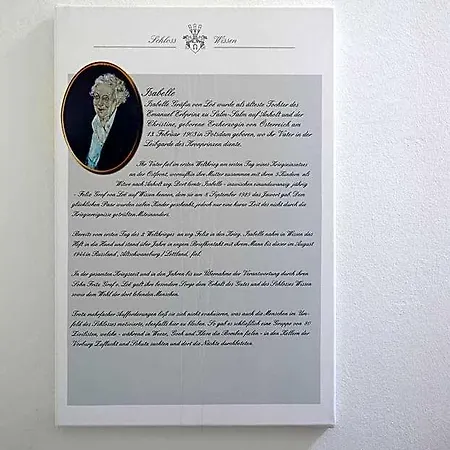 Schloss Wissen
Isabelle
Isabelle Gräfin von Loë wurde als älteste Tochter des
Emanuel Erbprinz zu Salm-Salm auf Anholt und der
Christine, geborene Erzherzogin von Österreich am
13. Februar 1903 in Potsdam geboren, wo ihr Vater in der
Leibgarde des Kronprinzen diente.
Ihr Vater fiel im ersten Weltkrieg am ersten Tag seines Kriegseinsatzes
an der Ostfront, woraufhin ihre Mutter zusammen mit ihren 5 Kindern als
Witwe nach Anholt zog. Dort lernte Isabelle - inzwischen einundzwanzig jährig
- Felix Graf von Loë auf Wissen kennen, dem sie am 8. September 1925 das Jawort gab. Dem
glücklichen Paar wurden sieben Kinder geschenkt, jedoch nur eine kurze Zeit des nicht durch die
Kriegsereignisse getrübten Miteinanders.
Bereits vom ersten Tag des 2. Weltkrieges an zog Felix in den Krieg. Isabelle nahm in Wissen das
Heft in die Hand und stand über Jahre in engem Briefkontakt mit ihrem Mann bis dieser im August
1944 in Russland, Altschwaneburg/Lettland, fiel.
In der gesamten Kriegszeit und in den Jahren bis zur Übernahme der Verantwortung durch ihren
Sohn Fritz Graf v. Loë galt ihre besondere Sorge dem Erhalt des Gutes und des Schlosses Wissen
sowie dem Wohl der dort lebenden Menschen.
Trotz mehrfacher Aufforderungen ließ sie sich nicht evakuieren, was auch die Menschen im Um-
feld des Schlosses motivierte, ebenfalls hier zu bleiben. So gab es schließlich eine Gruppe von 80
Zivilisten, welche - während in Weeze, Goch und Kleve die Bomben fielen - in den Kellern der
Vorburg Zuflucht und Schutz suchten und dort die Nächte durchbeteten.